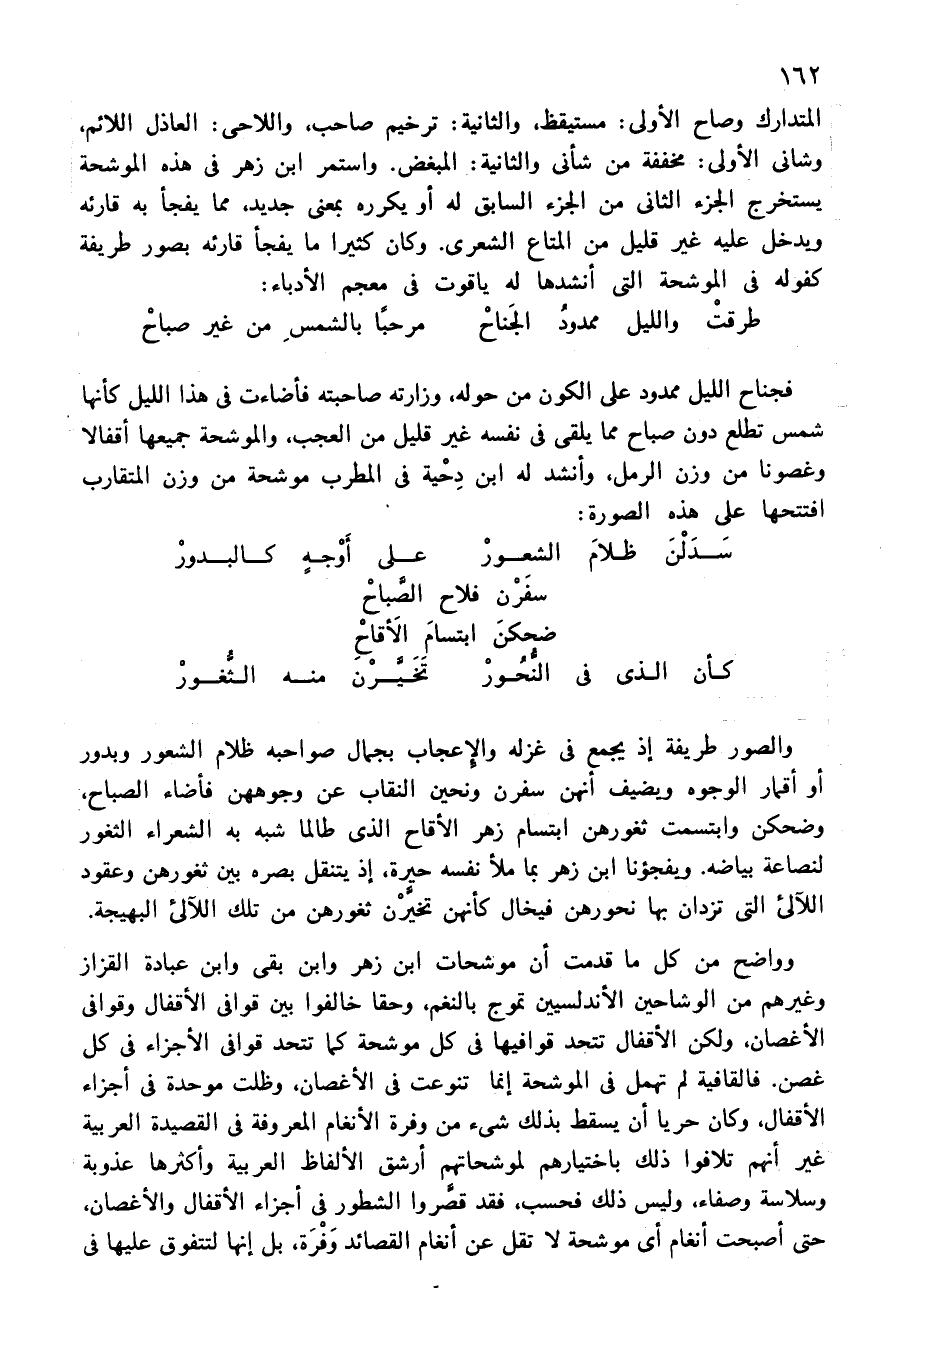 ١٦٢
المتدارك وصاح الأولى: مستيقظ، والثانية: ترخيم صاحب، واللاحى: العاذل اللائم،
وشانى الأولى: مخففة من شأنى والثانية: المبغض. واستمر ابن زهر فى هذه الموشحة
يستخرج الجزء الثانى من الجزء السابق له أو يكرره بمعنى جديد، مما يفجأ به قارئه
ويدخل عليه غير قليل من المتاع الشعرى. وكان كثيرا ما يفجأ قارئه بصور طريفة
كفوله فى الموشحة التى أنشدها له ياقوت فى معجم الأدباء:
طرقتْ والليل ممدودُ الجَناحْ مرحبًا بالشمسِ من غير صباحْ
فجناح الليل ممدود على الكون من حوله، وزارته صاحبته فأضاءت فى هذا الليل كأنها
شمس تطلع دون صباح مما يلقى فى نفسه غير قليل من العجب، والموشحة جميعها أقفالا
وغصونا من وزن الرمل، وأنشد له ابن دِحْية فى المطرب موشحة من وزن المتقارب
افتتحها على هذه الصورة:
سَدَلْنَ ظلامَ الشعورْ على أَوْجهٍ كالبدورْ
سفَرْن فلاح الصَّباحْ
ضحكنَ ابتسامَ الَأقاحْ
كأن الذى فى النُّحُورْ تَخَيَّرْنَ منه الثُّغورْ
والصور طريفة إذ يجمع فى غزله والإعجاب بجمال صواحبه ظلام الشعور وبدور
أو أقمار الوجوه ويضيف أنهن سفرن ونحين النقاب عن وجوههن فأضاء الصباح،
وضحكن وابتسمت ثغورهن ابتسام زهر الأقاح الذى طالما شبه به الشعراء الثغور
لنصاعة بياضه. ويفجؤنا ابن زهر بما ملأ نفسه حيرة، إذ يتنقل بصره بين ثغورهن وعقود
اللآلئ التى تزدان بها نحورهن فيخال كأنهن تخيَّرْن ثغورهن من تلك اللآلئ البهيجة.
وواضح من كل ما قدمت أن موشحات ابن زهر وابن بقى وابن عبادة القزاز
وغيرهم من الوشاحين الأندلسيين تموج بالنغم، وحقا خالفوا بين قوافى الأقفال وقوافى
الأغصان، ولكن الأقفال تتحد قوافيها فى كل موشحة كما تتحد قوافى الأجزاء فى كل
غصن. فالقافية لم تهمل فى الموشحة إنما تنوعت فى الأغصان، وظلت موحدة فى أجزاء
الأقفال، وكان حريا أن يسقط بذلك شىء من وفرة الأنغام المعروفة فى القصيدة العربية
غير أنهم تلافوا ذلك باختيارهم لموشحاتهم أرشق الألفاظ العربية وأكثرها عذوبة
وسلاسة وصفاء، وليس ذلك فحسب، فقد قصَّروا الشطور فى أجزاء الأقفال والأغصان،
حتى أصبحت أنغام أى موشحة لا تقل عن أنغام القصائد وَفْرَة، بل إنها لتتفوق عليها فى